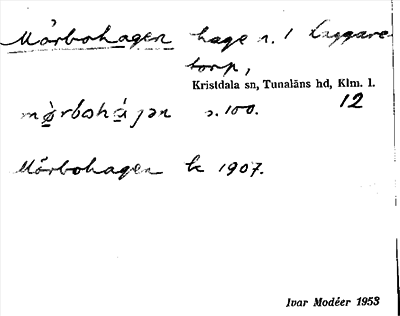 Mörbohagen hage n. / Laggare
torp,
Kristdala sn, Tunaläns hd, Klm. l.
mö̀rbohá jən s. 100. 12
Mörbohagen k 1907.
Ivar Modéer 1953